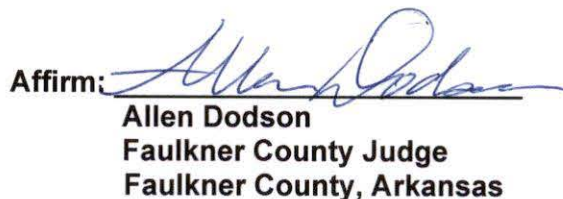 Affirm: Allen Dodson
Allen Dodson
Faulkner County Judge
Faulkner County, Arkansas